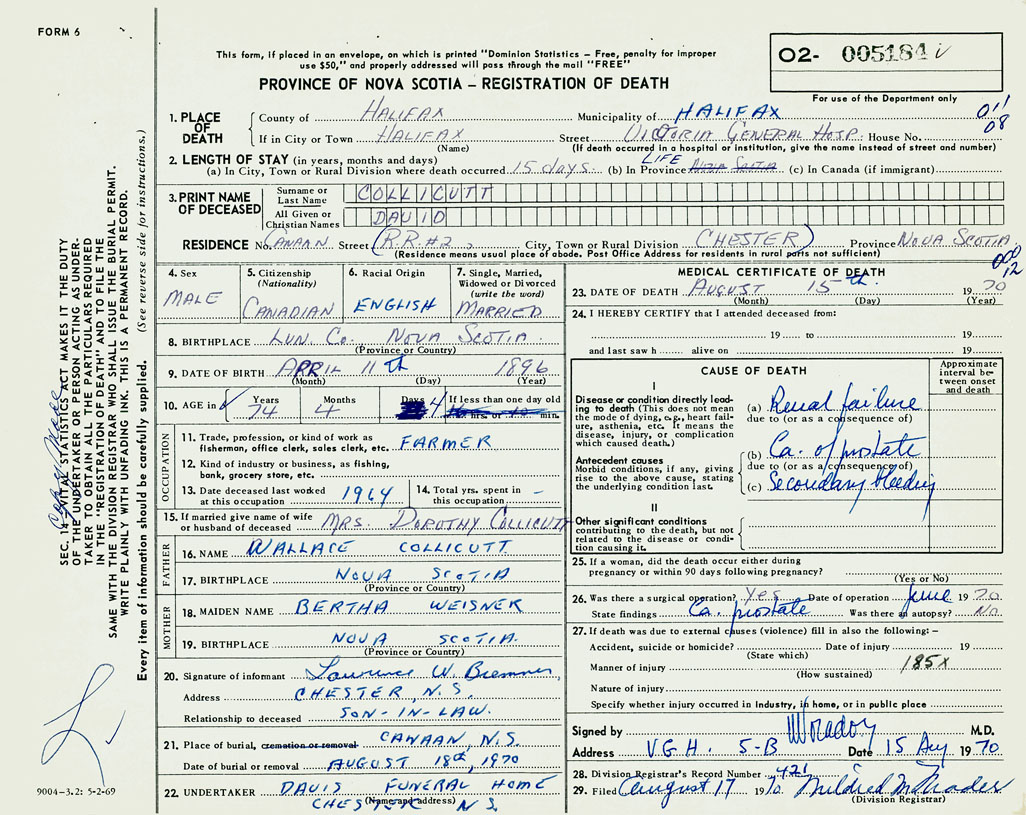 FORM 6
This form, if placed in an envelope, on which is printed "Dominion Statistics – Free, penalty for improper
use $50," and properly addressed will pass through the mail "FREE"
PROVINCE OF NOVA SCOTIA – REGISTRATION OF DEATH
O2- 005184
For use of the Department only
1. PLACE OF DEATH
County of HALIFAX Municipality of HALIFAX 011
If in City or Town HALIFAX Street VICTORIA GENERAL HOSP. House No. 08
(Name) (If death occurred in a hospital or institution, give the name instead of street and number)
2. LENGTH OF STAY (in years, months and days) LIFE
(a) In City, Town or Rural Division where death occurred 15 days (b) In Province NOVA SCOTIA (c) In Canada (if immigrant)
3. PRINT NAME OF DECEASED
Surname or Last Name COLLICUTT
All Given or Christian Names DAVID
RESIDENCE No. CANAAN Street (R.R.#2, City, Town or Rural Division CHESTER) Province NOVA SCOTIA
(Residence means usual place of abode. Post Office Address for residents in rural parts not sufficient)
000
12
4. Sex MALE
5. Citizenship (Nationality) CANADIAN
6. Racial Origin ENGLISH
7. Single, Married, Widowed or Divorced (write the word) MARRIED
8. BIRTHPLACE LUN. Co. NOVA SCOTIA
(Province or Country)
9. DATE OF BIRTH APRIL 11th 1896
(Month) (Day) (Year)
10. AGE in Years 74 Months 4 Days 4 If less than one day old hrs. or min.
OCCUPATION
11. Trade, profession, or kind of work as
fisherman, office clerk, sales clerk, etc. FARMER
12. Kind of industry or business, as fishing,
bank, grocery store, etc.
13. Date deceased last worked
at this occupation 1964
14. Total yrs. spent in
this occupation –
15. If married give name of wife
or husband of deceased MRS. DOROTHY COLLICUTT
FATHER
16. NAME WALLACE COLLICUTT
17. BIRTHPLACE NOVA SCOTIA
(Province or Country)
MOTHER
18. MAIDEN NAME BERTHA WEISNER
19. BIRTHPLACE NOVA SCOTIA.
(Province or Country)
20. Signature of informant Laurence W. Bremner
Address CHESTER, N.S.
Relationship to deceased SON-IN-LAW.
21. Place of burial, cremation or removal CANAAN, N.S.
Date of burial or removal AUGUST 18th, 1970
22. UNDERTAKER DAVIS FUNERAL HOME
(Name and address)
CHESTER N S.
MEDICAL CERTIFICATE OF DEATH
23. DATE OF DEATH AUGUST 15th. 1970
(Month) (Day) (Year)
24. I HEREBY CERTIFY that I attended deceased from:
19 to 19
and last saw h alive on 19
CAUSE OF DEATH
Approximate interval between onset and death
I
Disease or condition directly leading to death (This does not mean the mode of dying, e.g., heart failure, asthenia, etc. It means the disease, injury, or complication which caused death.)
(a) Renal failure
due to (or as a consequence of)
Antecedent causes
Morbid conditions, if any, giving rise to the above cause, stating the underlying condition last.
(b) Ca. of prostate
due to (or as a consequence of)
(c) Secondary bleeding
II
Other significant conditions contributing to the death, but not related to the disease or condition causing it.
25. If a woman, did the death occur either during
pregnancy or within 90 days following pregnancy?
(Yes or No)
26. Was there a surgical operation? Yes Date of operation June 1970
State findings Ca. prostate Was there an autopsy? No
27. If death was due to external causes (violence) fill in also the following: –
Accident, suicide or homicide? Date of injury 19
(State which)
Manner of injury 185X
(How sustained)
Nature of injury
Specify whether injury occurred in Industry, in home, or in public place
Signed by M.D.
Address V.G.H. 5-B Date 15 Aug 1970
28. Division Registrar's Record Number 421
29. Filed August 17 1970 Mildred
(Division Registrar)
SEC. 14 – VITAL STATISTICS ACT MAKES IT THE DUTY
OF THE UNDERTAKER OR PERSON ACTING AS UNDER-
TAKER TO OBTAIN ALL THE PARTICULARS REQUIRED
IN THE "REGISTRATION OF DEATH" AND TO FILE THE
SAME WITH THE DIVISION REGISTRAR WHO SHALL ISSUE THE BURIAL PERMIT.
WRITE PLAINLY WITH UNFADING INK. THIS IS A PERMANENT RECORD.
Every item of information should be carefully supplied. (See reverse side for instructions.)
9004-3.2: 5-2-69